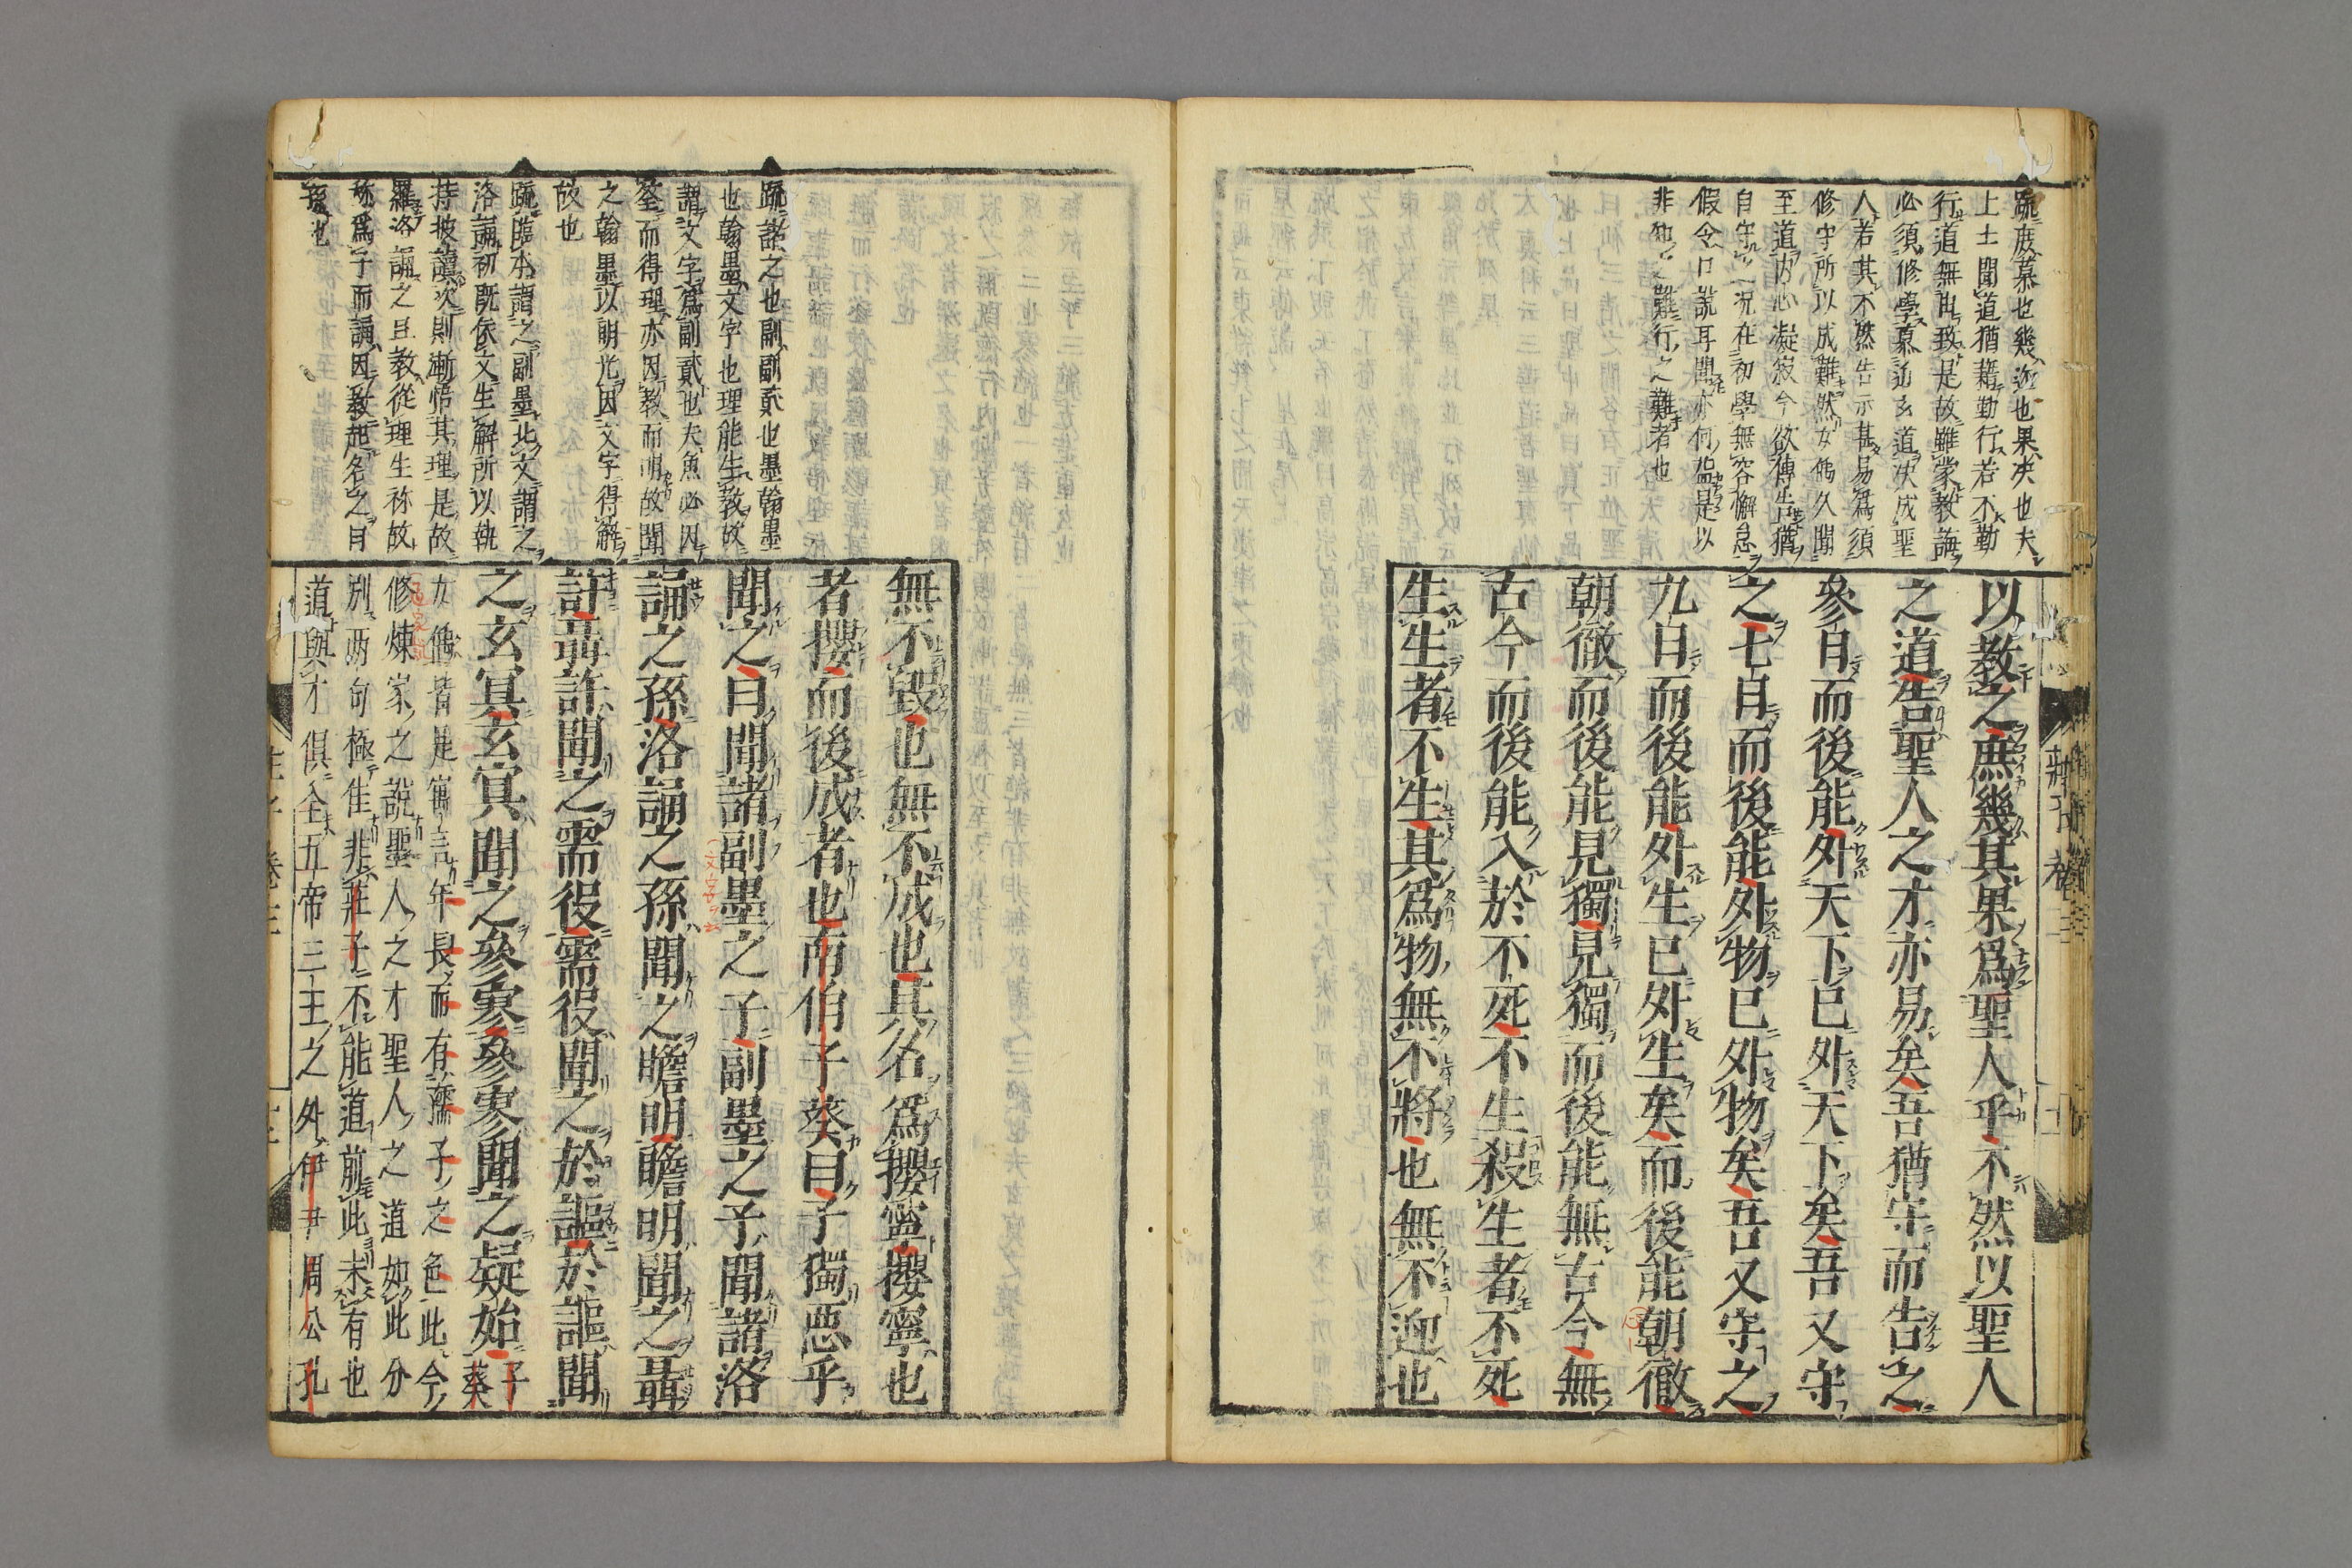 疏庶慕也幾近也果决也夫
上士聞道猶藉勤行若不勤
行道無由致是故雖蒙教誨
必須修學慕近玄道决成聖
人若其不然告示甚易爲須
修守所以成難然女偊久聞
至道内心凝寂今欲傳告猶
自守之况在初學無容懈怠
假令口說耳聞亦何益是以
非知之難行之難者也
以教之庶幾其果爲聖人乎不然以聖人
之道告聖人之才亦易矣吾猶守而告之
參日而後能外天下已外天下矣吾又守
之七日而後能外物已外物矣吾又守之
九日而後能外生已外生矣而後能朝徹
朝徹而後能見獨見獨而後能無古今無
古今而後能入於不死不生殺生者不死
生生者不生其爲物無不將也無不迎也
疏諸之也副副貳也墨翰墨
也翰墨文字也理能生教故
謂文字爲副貳也夫魚必因
筌而得理亦因教而明故聞
之翰墨以明先因文字得解
故也
疏臨本謂之副墨北文謂之
洛誦初既依文生解所以執
持披讀次則漸悟其理是故
羅洛誦之且教從理生称故
称爲子而誦因教起名之曰
孫也
無不毀也無不成也其名爲攖寧攖寧也
者攖而後成者也南伯子葵曰子獨惡乎
聞之曰聞諸副墨之子副墨之子聞諸洛
誦之孫洛誦之孫聞之瞻明瞻明聞之聶
許聶許聞之需役需役聞之於謳於謳聞
之玄冥玄冥聞之參寥參寥聞之疑始子葵
女偊皆是寓言年長而有孺子之色此今
修煉家之說聖人之才聖人之道如此分
別两句極佳非莊子不能道前此未有也
道與才俱全五帝三王之外伊尹周公孔
莊子 卷三